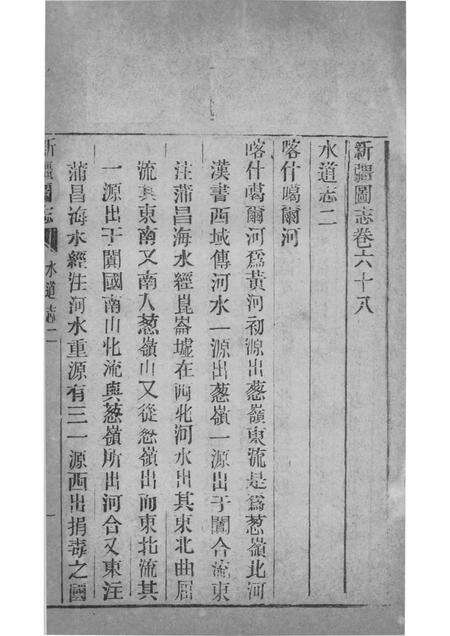 新疆圖志卷六十八
水道志二
喀什噶爾河
喀什噶爾河爲黃河初源出葱嶺東流是爲葱嶺北河
漢書西域傳河水一源出葱嶺一源出于闐合流東
注蒲昌海水經崑崙墟在西北河水出其東北曲屈
流其東南又南入葱嶺山又從葱嶺出而東北流其
一源出于闐國南山北流與葱嶺所出河合又東注
蒲昌海水經注河水重源有三一源西出捐毒之國
新疆圖志 水道志二 一